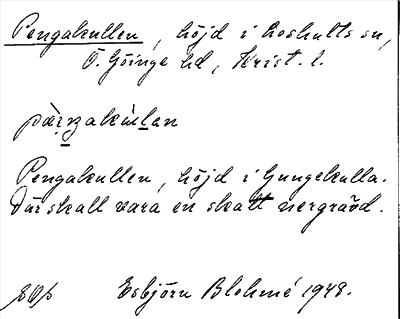 Pengakullen, höjd i Loshults sn,
Ö. Göinge hd, Krist. l.
pæŋakulan
Pengakullen, höjd i Gungekulla.
Där skall vara en skatt nergrävd.
Esbjörn Blohmé 1948.